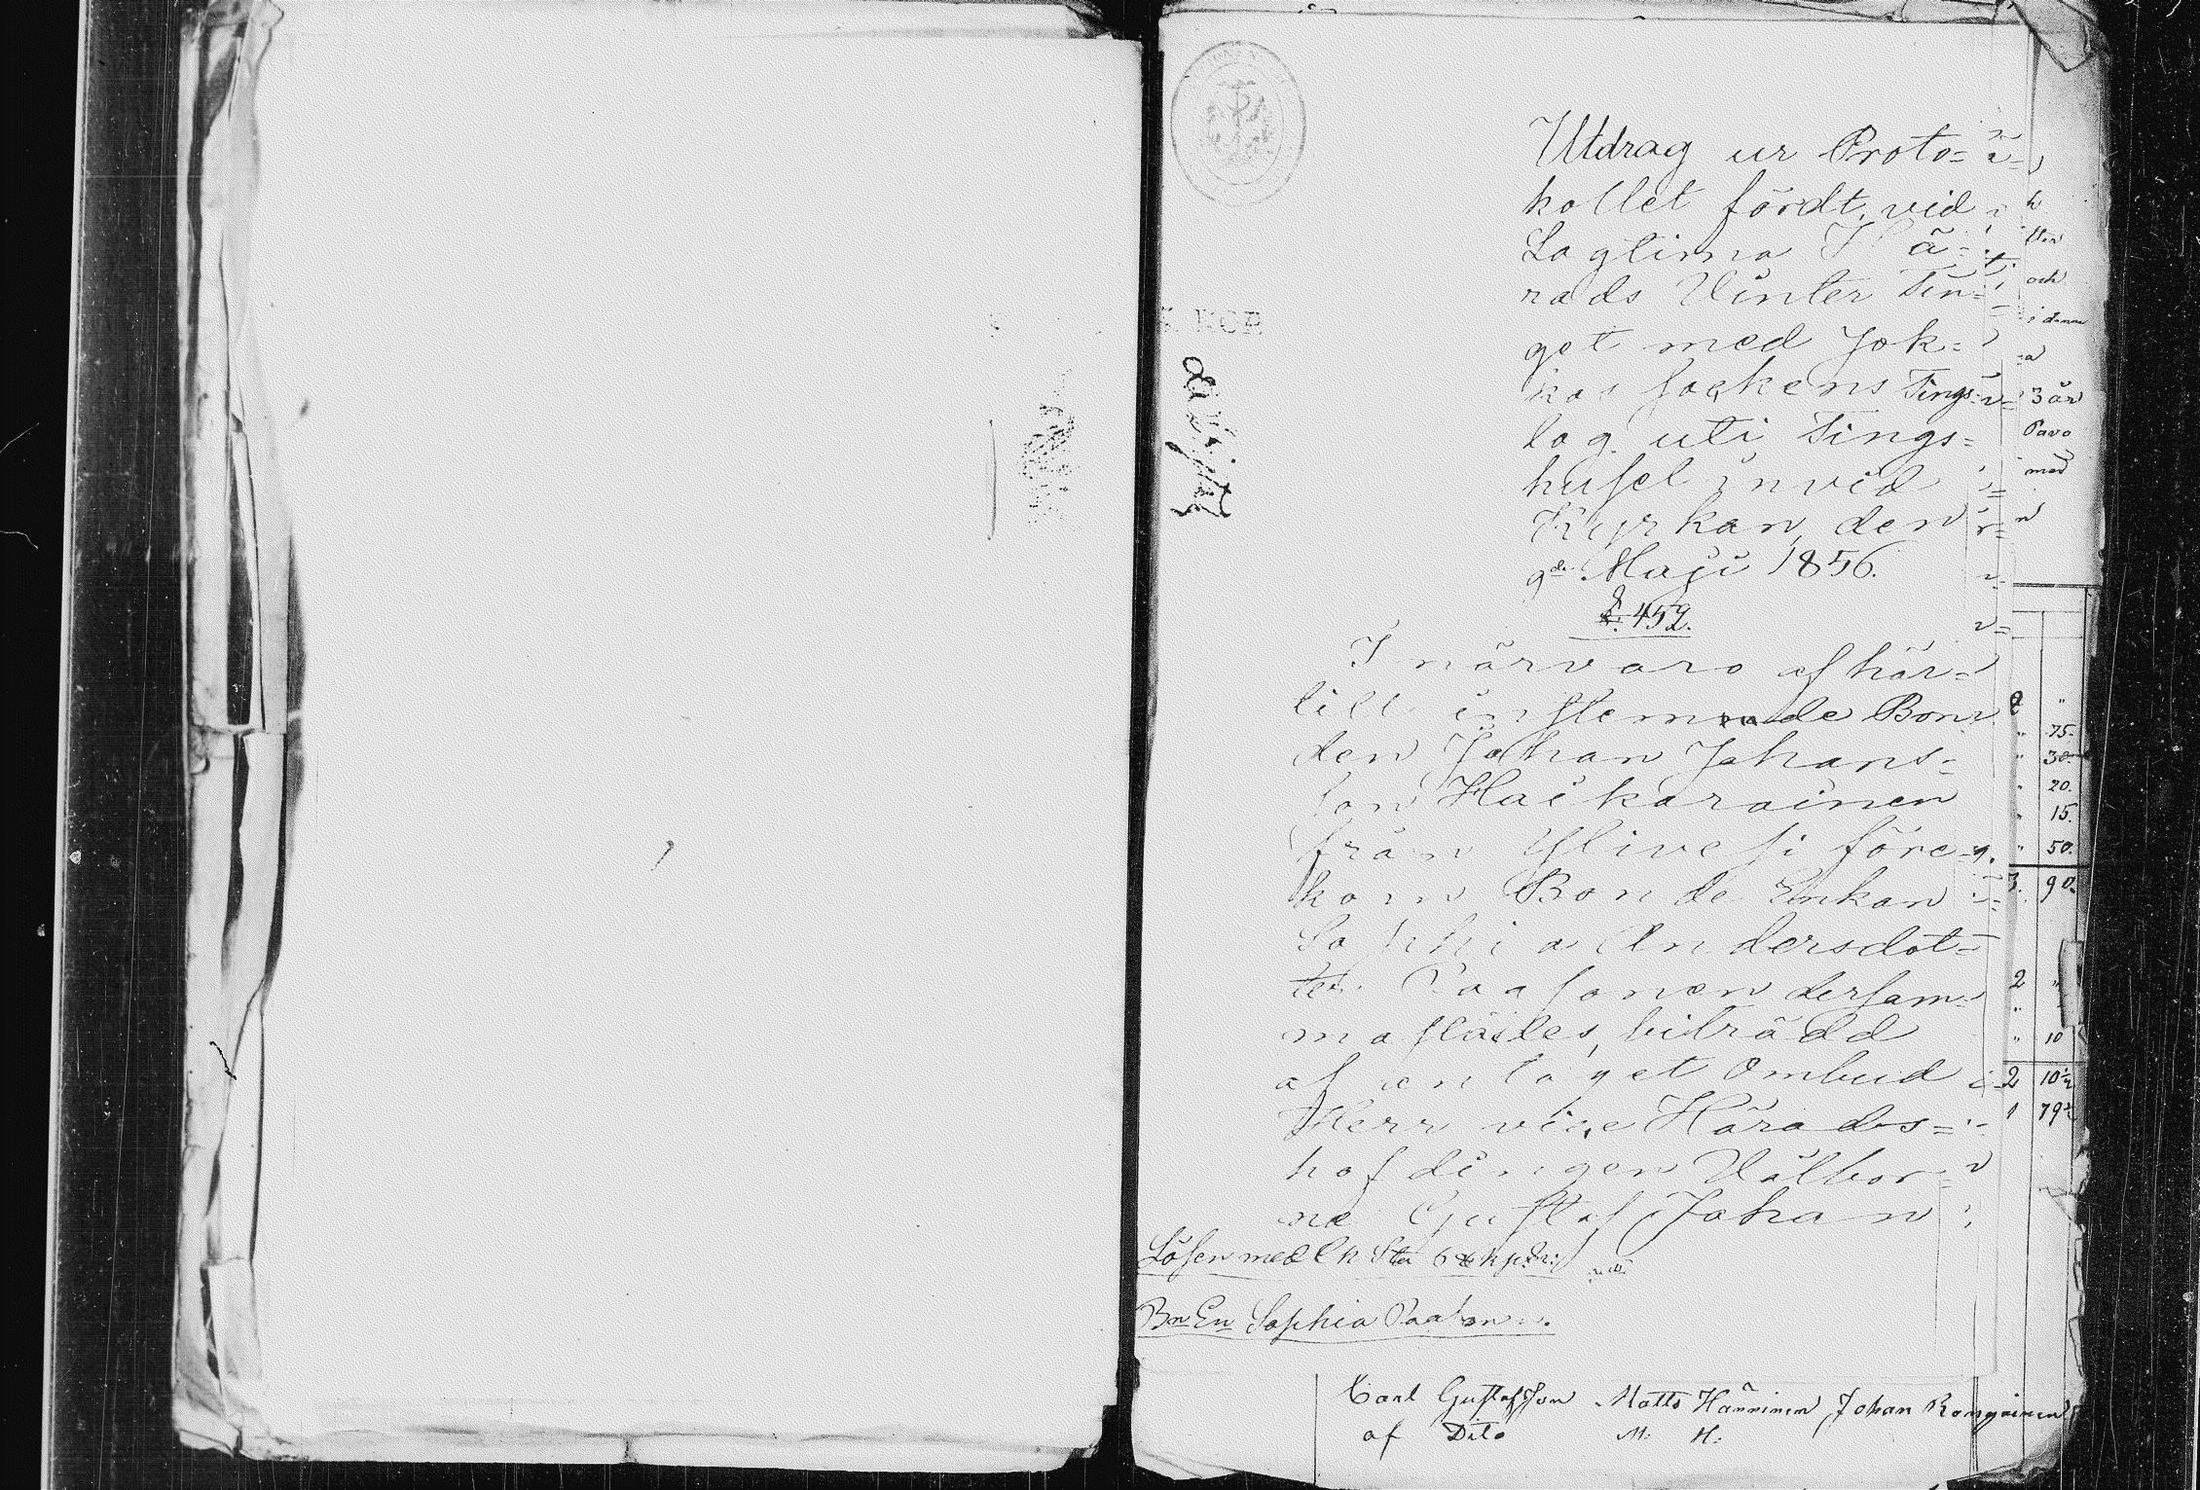 Utdrag ur Proto=
kollet fördt, vid
Lagtima Hä=
rads Vinter Tin=
get med Jok=
kas Sockens Tings=
lag uti Tings=
huset invid
Kyrkan, den
9de Maji 1856.
§. 459.
I närvaro af här=
till instemnade Bon=
den Johan Johans=
son Haikarainen
från Ylivesi före=
kom Bonde Enkan
Sophia Andersdot=
ter Paasonen dersam=
mastädes, biträdd
af antaget Ombud
Herr vice Härads=
höfdingen Välbor=
ne Gustaf Johan
Lösen med
Bn En Sophia Paason
Carl Gustafsson Matts Hänninen Johan
af Dito M: H:
och
3 år
Pavo
med
75.
30.
20.
15.
50.
3. 90.
2
10
2 10½
1 79½